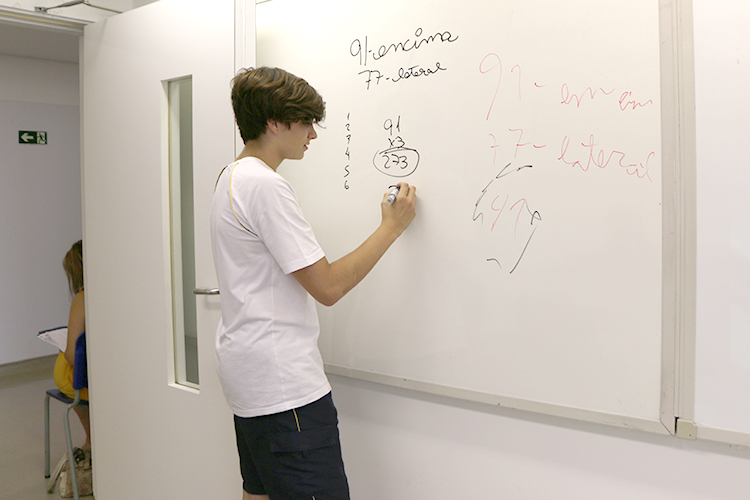 91-encima
77-lateral
1
2
3
4
5
6
91
x3
273
91-
77- lateral
91